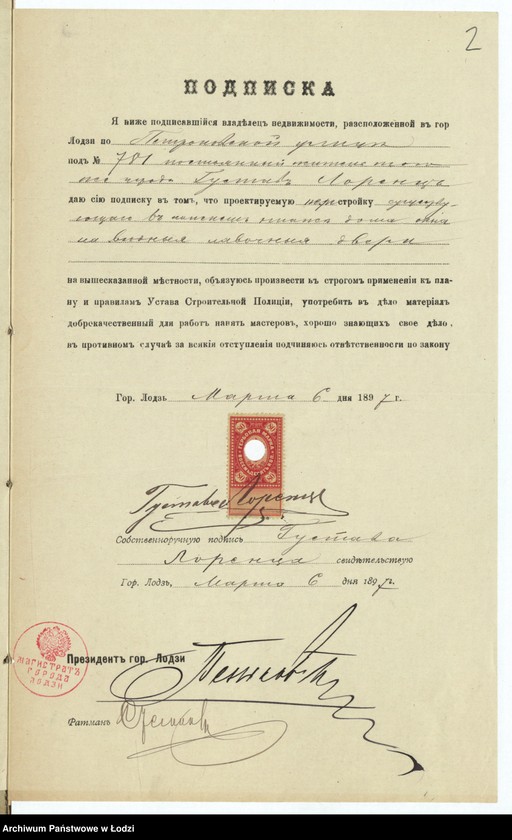 2
ПОДПИСКА
Я ниже подписавшійся владѣлецъ недвижимости, расположенной въ гор
Лодзи по Петроковской улицѣ
подъ № 781 постоянный житель того
же города Густавъ Лоренцъ
даю сію подписку въ томъ, что проектируемую перестройку существу-
ющаго въ жилаго дома окна
на выходныя лавочныя двери
на вышесказанной мѣстности, обязуюсь произвести въ строгомъ примѣненіи къ пла-
ну и правиламъ Устава Строительной Полиціи, употребить въ дѣло матеріалъ
доброкачественный для работъ нанять мастеровъ, хорошо знающихъ свое дѣло,
въ противномъ случаѣ за всякія отступленія подчиняюсь отвѣтственности по закону
Гор. Лодзь Марта 6 дня 1897 г.
80 80
ГЕРБОВАЯ МАРКА
Густавъ Лоренцъ
Собственноручную подпись Густава
Лоренца свидѣтельствую
Гор. Лодзь, Марта 6 дня 1897 г.
МАГИСТРАТЪ
ГОРОДА
ЛОДЗИ
Президентъ гор. Лодзи
Ратманъ
Archiwum Państwowe w Łodzi